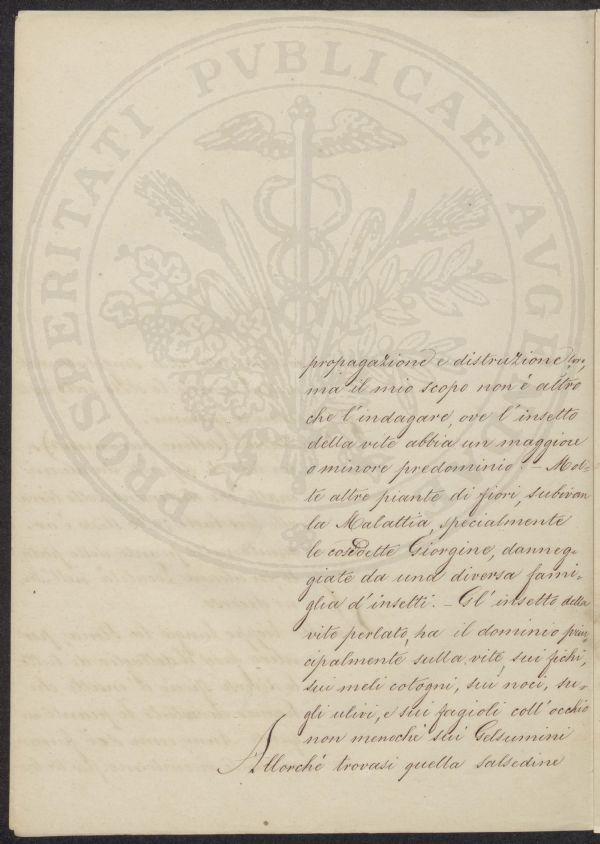 PROSPERITATI PVBLICAE AVGE
propagazione e distruzione loro,
ma il mio scopo non è altro
che l'indagare, ove l'insetto
della vite abbia un maggiore
o minore predominio. – Mol-
te altre piante di fiori, subivan
la Malattia, specialmente
le cosedette Giorgine, danneg-
giate da una diversa fami-
glia d'insetti. – Gl'insetto della
vite perlato, ha il dominio prin-
cipalmente sulla vite, sui fichi,
sui meli cotogni, sui noci, su-
gli ulivi, e sui fagioli coll'occhio
non menochè sui Gelsumini
Allorchè trovasi quella salsedine